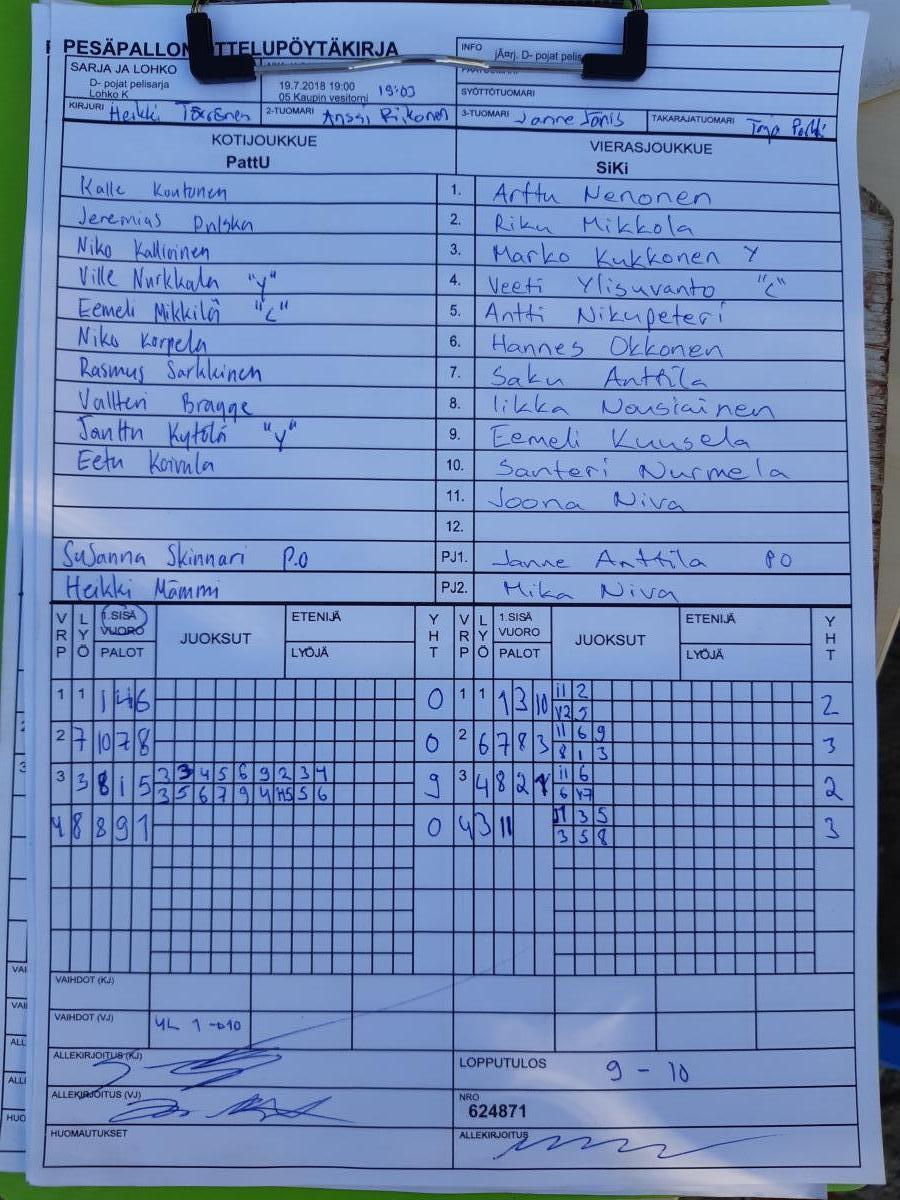 PESÄPALLON OTTELUPÖYTÄKIRJA
INFO jÃ¤rj. D- pojat pelis
SARJA JA LOHKO
D- pojat pelisarja
Lohko K
19.7.2018 19:00 19:03
05 Kaupin vesitorni
SYÖTTÖTUOMARI
KIRJURI Heikki 2-TUOMARI Anssi Riikonen 3-TUOMARI Janne Jänis TAKARAJATUOMARI
KOTIJOUKKUE VIERASJOUKKUE
PattU SiKi
Kalle Kontonen 1. Arttu Nenonen
Jeremias Pulska 2. Riku Mikkola
Niko Kallioinen 3. Marko Kukkonen Y
Ville Nurkkala "Y" 4. Veeti Ylisuvanto "C"
Eemeli Mikkilä "C" 5. Antti Nikupeteri
Niko Korpela 6. Hannes Okkonen
Rasmus Sarkkinen 7. Saku Anttila
Valtteri Bragge 8. Iikka Nousiainen
Janttu Kytölä "Y" 9. Eemeli Kuusela
Eetu Koivula 10. Santeri Nurmela
11. Joona Niva
12.
Susanna Skinnari P.O PJ1. Janne Anttila PO
Heikki Mämmi PJ2. Mika Niva
VRP LYÖ 1.SISÄ VUORO PALOT JUOKSUT ETENIJÄ LYÖJÄ YHT VRP LYÖ 1.SISÄ VUORO PALOT JUOKSUT ETENIJÄ LYÖJÄ YHT
1 1 1 4 6 0 1 1 1 3 10 11 2 2
V2 5
2 7 10 7 8 0 2 6 7 8 3 11 6 9 3
8 1 3
3 3 8 1 5 3 3 4 5 6 9 2 3 4 9 3 4 8 2 11 6 2
3 5 6 7 9 4 5 6 6 Y7
4 8 8 9 1 0 4 3 11 3 5 3
3 5 8
VAIHDOT (KJ)
VAIHDOT (VJ) 4L 1→10
ALLEKIRJOITUS (KJ) LOPPUTULOS 9 - 10
ALLEKIRJOITUS (VJ) NRO
624871
HUOMAUTUKSET ALLEKIRJOITUS